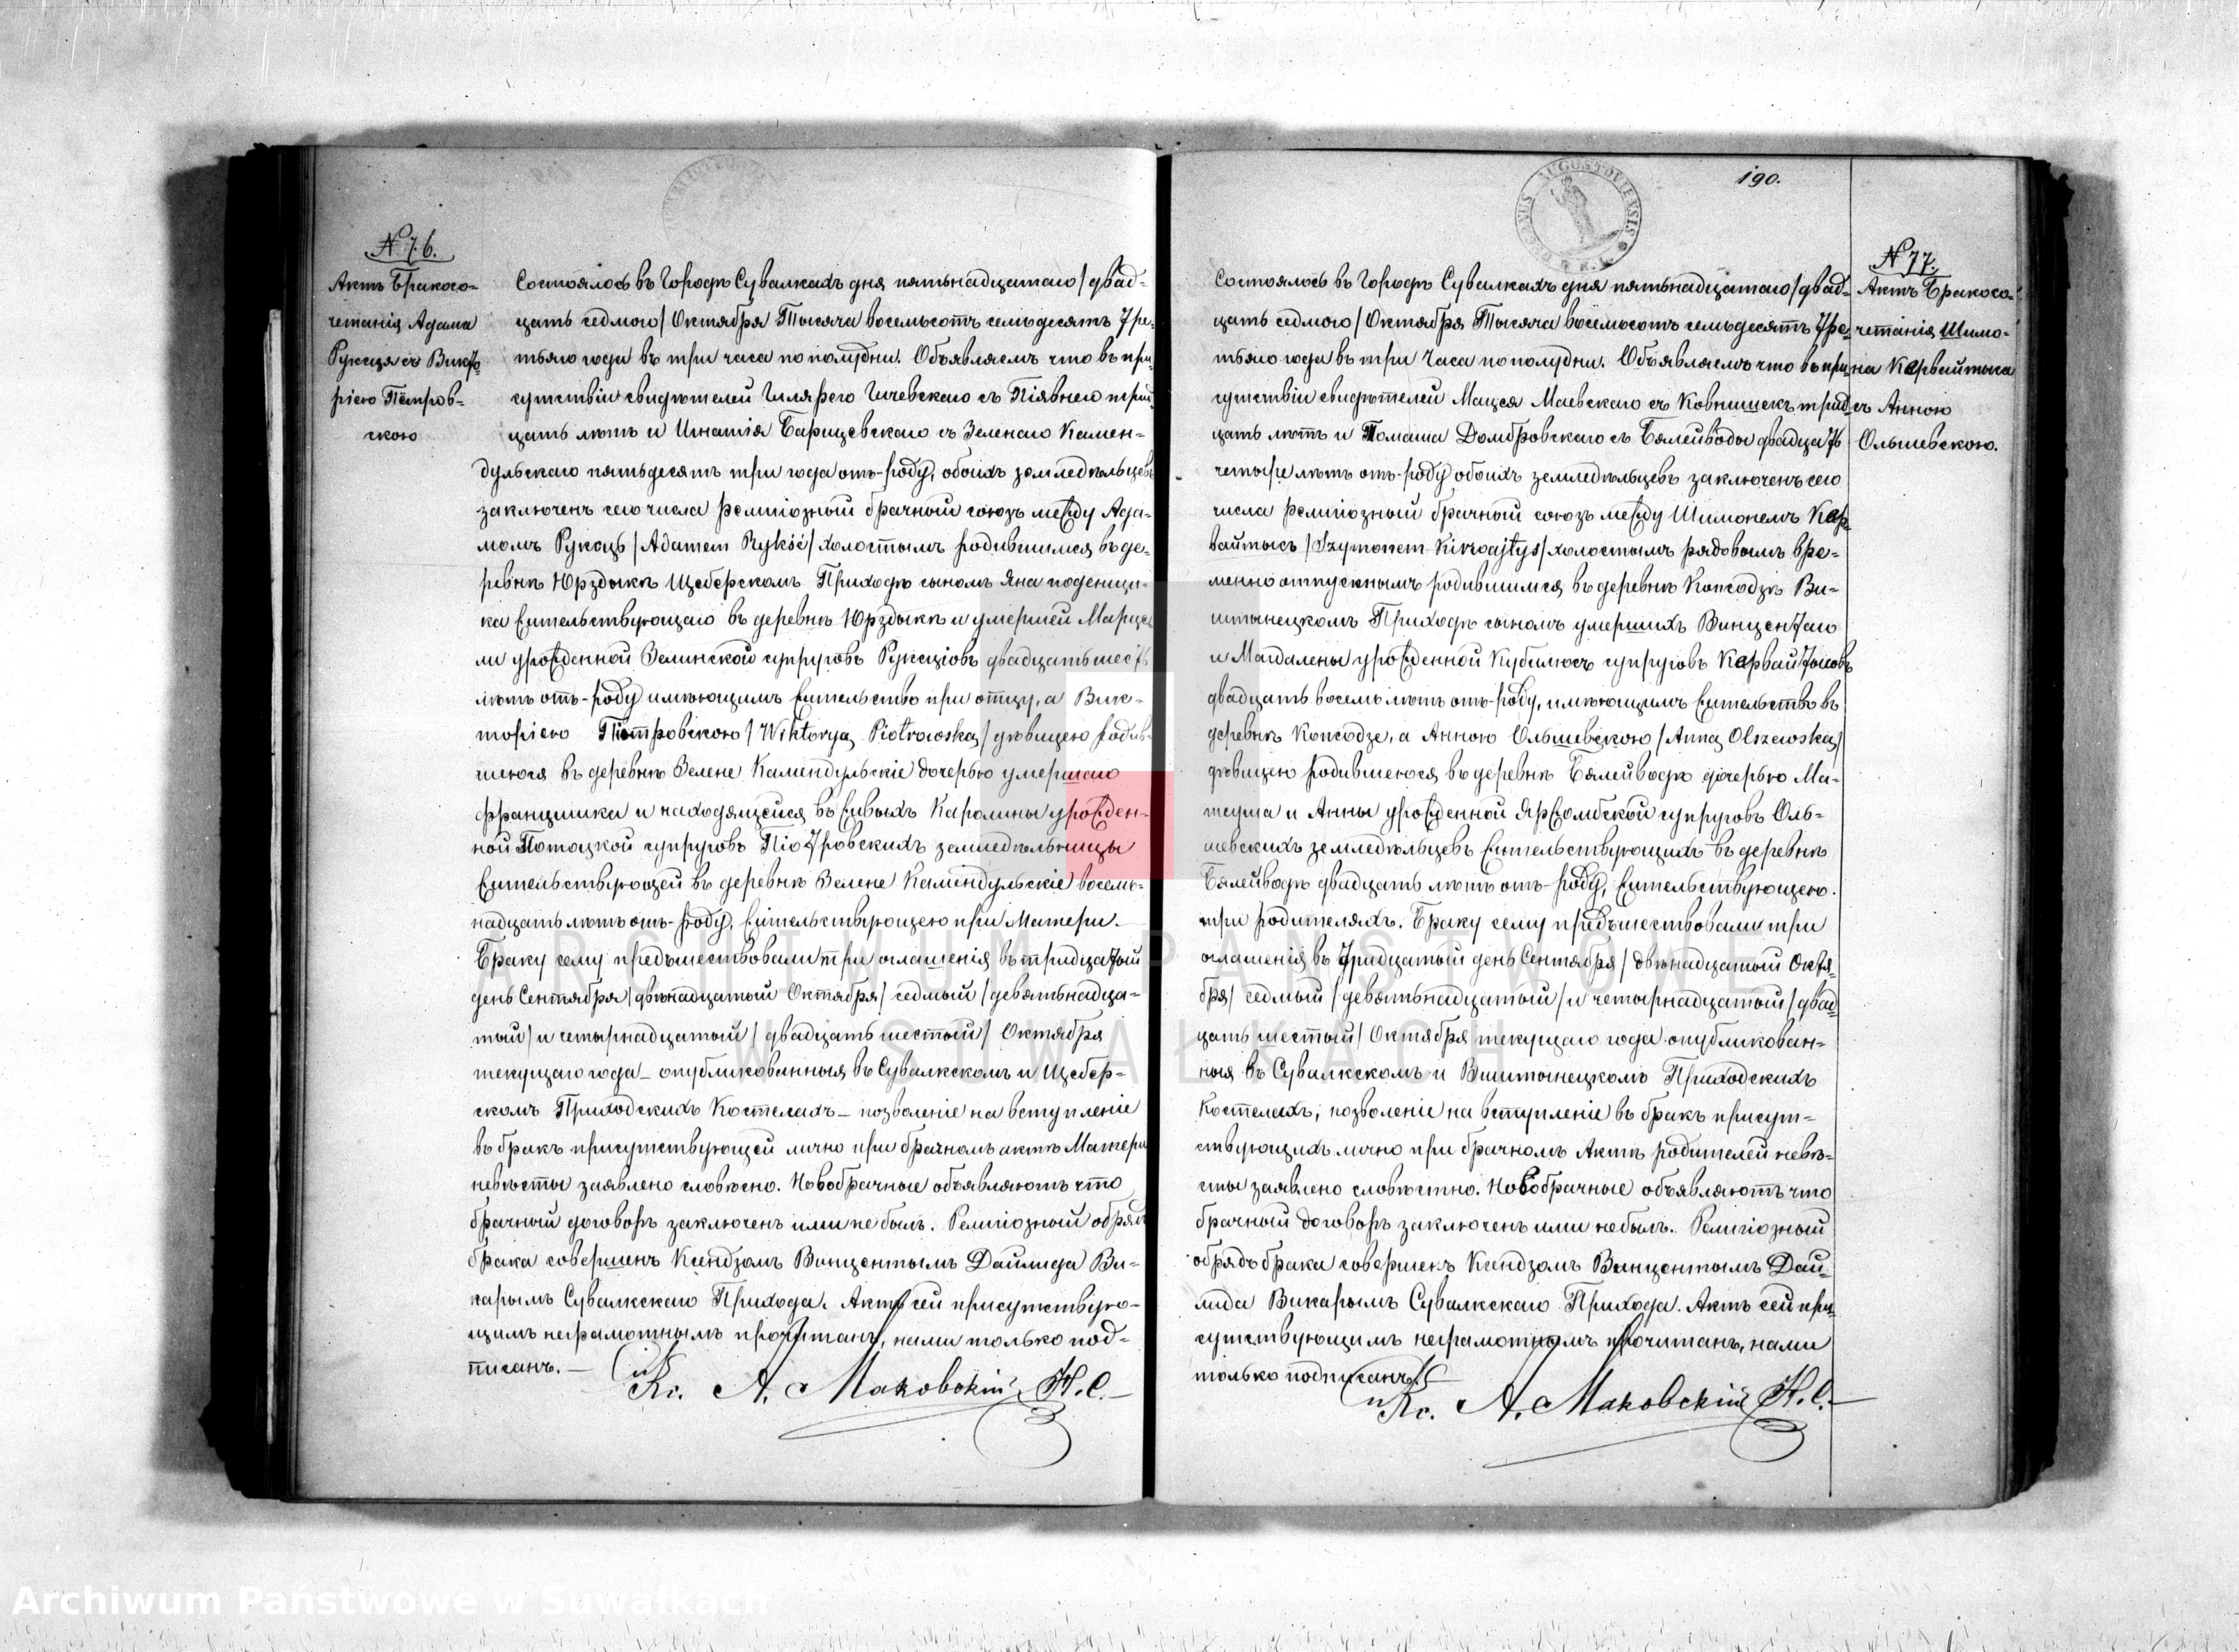 № 76.
Актъ Бракосо-
четанія Адама
Рукеця съ Викто-
ріею Піотров-
скою
Состоялось въ Городѣ Сувалкахъ дня пятьнадцатаго / двад-
цать седмого / Октября Тысяча восемьсотъ семьдесятъ тре-
тьяго года въ три часа по полудни. Объявляемъ что въ при-
сутствіи свидѣтелей Гилярего Гичевскаго съ Піявнего трид-
цать лѣтъ и Игнатія Барищевскаго съ Зеленаго Камен-
дульскаго пятьдесятъ три года отъ-роду, обоихъ земледѣльцевъ
заключенъ сего числа религіозный брачный союзъ между Ада-
момъ Рукець / Adamem Rykść / холостымъ родившимся въ де-
ревнѣ Юрздыкѣ Щеберскомъ Приходѣ сыномъ Яна поденщи-
ка жительствующаго въ деревнѣ Юрздыкѣ и умершей Марце-
ли урожденной Зелинской супруговъ Рукеціовъ двадцать шесть
лѣтъ отъ-роду имѣющимъ жительство при отцу, а Вик-
торіею Піотровскою / Wiktoryą Piotrowską / дѣвицею родив-
шеюся въ деревнѣ Зелене Камендульскіе дочерью умершаго
Францишка и находящейся въ живыхъ Каролины урожден-
ной Потоцкой супруговъ Піотровскихъ земледѣльницы
жительствующей въ деревнѣ Зелене Камендульскіе восемь-
надцать лѣтъ отъ-роду, жительствующею при Матери.
Браку сему предъшествовали три оглашенія въ тридцатый
день Сентября / двѣнадцатый Октября / седмый / девятьнадца-
тый / и четырнадцатый / двадцать шестый / Октября
текущаго года – опубликованныя въ Сувалкскомъ и Щебер-
скомъ Приходскихъ Костелахъ – позволеніе на вступленіе
въ бракъ присутствующей лично при брачномъ актѣ Матери
невѣсты заявлено словѣсно. Новобрачные объявляютъ что
брачный договоръ заключенъ ими не былъ. Религіозный обрядъ
брака совершенъ Ксендзомъ Винцентымъ Дайлида Ви-
карымъ Сувалкскаго Прихода. Актъ сей присутствую-
щимъ неграмотнымъ прочитанъ, нами только под-
писанъ. –
Кс. А. Маковскій Н.С.
190.
№ 77.
Актъ Бракосо-
четанія Шимо-
на Кервайтыса
съ Анною
Ольшевскою.
Состоялось въ Городѣ Сувалкахъ дня пятьнадцатаго / двад-
цать седмого / Октября Тысяча восемьсотъ семьдесятъ тре-
тьяго года въ три часа по полудни. Объявляемъ что въ при-
сутствіи свидѣтелей Мацея Маевскаго съ Ковнишекъ трид-
цать лѣтъ и Томаша Домбровскаго съ Бялейводы двадцать
четыре лѣтъ отъ-роду обоихъ земледѣльцевъ заключенъ сего
числа религіозный брачный союзъ между Шимонемъ Кер-
вайтысъ / Szymonem Kirwajtys / холостымъ рядовымъ вре-
менно отпускнымъ родившимся въ деревнѣ Копсодзѣ Ви-
штынецкомъ Приходѣ сыномъ умершихъ Винцентаго
и Магдалены урожденной Кубилюсъ супруговъ Кервайтысовъ
двадцать восемь лѣтъ отъ-роду, имѣющимъ жительство въ
деревнѣ Копсодзе, а Анною Ольшевскою / Anną Olszewską /
дѣвицею родившеюся въ деревнѣ Бялейводѣ дочерью Ма-
теуша и Анны урожденной Яржомбской супруговъ Оль-
шевскихъ земледѣльцевъ жительствующихъ въ деревнѣ
Бялейводѣ двадцать лѣтъ отъ-роду, жительствующею.
при родителяхъ. Браку сему предъшествовали три
оглашенія въ тридцатый день Сентября / двѣнадцатый Октя-
бря / седмый / девятьнадцатый / и четырнадцатый / двад-
цать шестый / Октября текущаго года опубликован-
ныя въ Сувалкскомъ и Виштынецкомъ Приходскихъ
Костелахъ, позволеніе на вступленіе въ бракъ присут-
ствующихъ лично при брачномъ Актѣ родителей невѣ-
сты заявлено словѣстно. Новобрачные объявляютъ что
брачный договоръ заключенъ ими небылъ. Религіозный
обрядъ брака совершенъ Ксендзомъ Винцентымъ Дай-
лида Викарымъ Сувалкскаго Прихода. Актъ сей при-
сутствующимъ неграмотнымъ прочитанъ, нами
только подписанъ.
Кс. А. Маковскій Н.С.
ARCHIWUM PAŃSTWOWE
W SUWAŁKACH
Archiwum Państwowe w Suwałkach